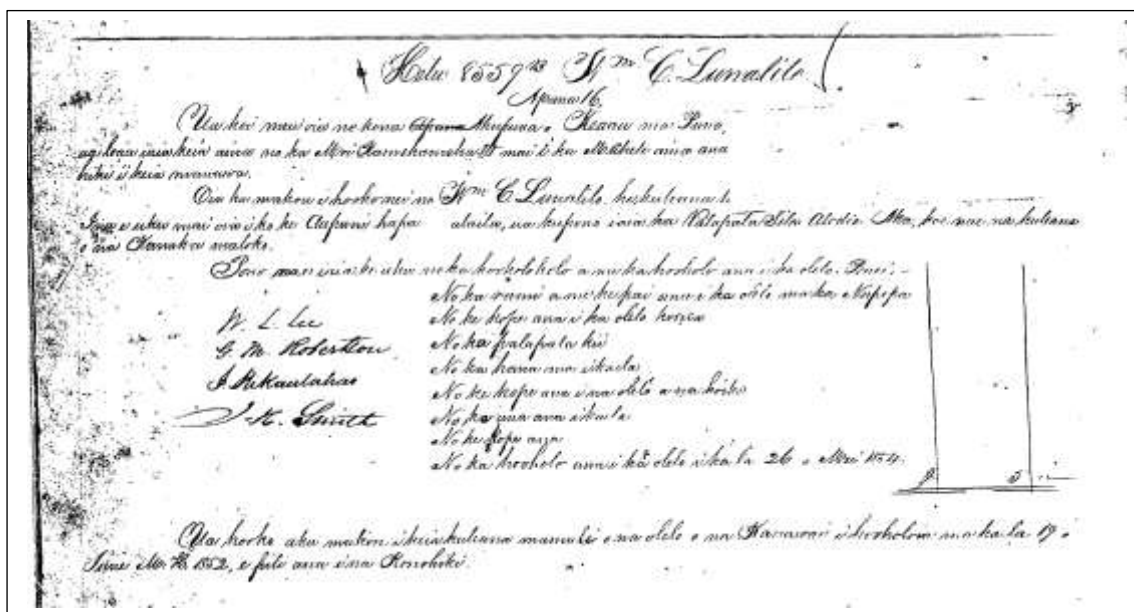 Helu 8559 B Wm C. Lunalilo
Apana 16.
Ua koi mau oia no kona Ahupuaa o Keaau ma Puna,
ua loaa iaia keia aina no ka Moi Kamehameha III mai i ka Mahele aina ana
keia
Oia ka makou e hooko nei no Wm C. Lunalilo, he kuleana
Ina e uku mai oia i ko ke Aupuni hapa alaila, ua kupono iaia ka Palapala Sila Alodio Aka, koe nae na kuleana
o na Kanaka maloko.
Pono iaia ke uku no ka hookolokolo a me ka hooholo ana i ka olelo. Penei,
No ka a me ke pai ana i ka olelo ma ka Nupepa
W. L. Lee No ke kope ana i ka olelo hoike
G. M. Robertson No ka palapala kii
J. Kekaulahao No ka hana ana i kaula
No ke kope ana i na olelo a na hoike
J. H. Smith No ka ana ana i ka la
No ke kope ana
No ka hooholo ana i ka olelo i ka la 26 o Mei 1854. 9 5
Ua hooko aku makou i keia kuleana mamuli o na olelo o na Kanawai i hooholoia ma ka la 19 o
Iune M. H. 1852, e pili ana i na Konohiki.